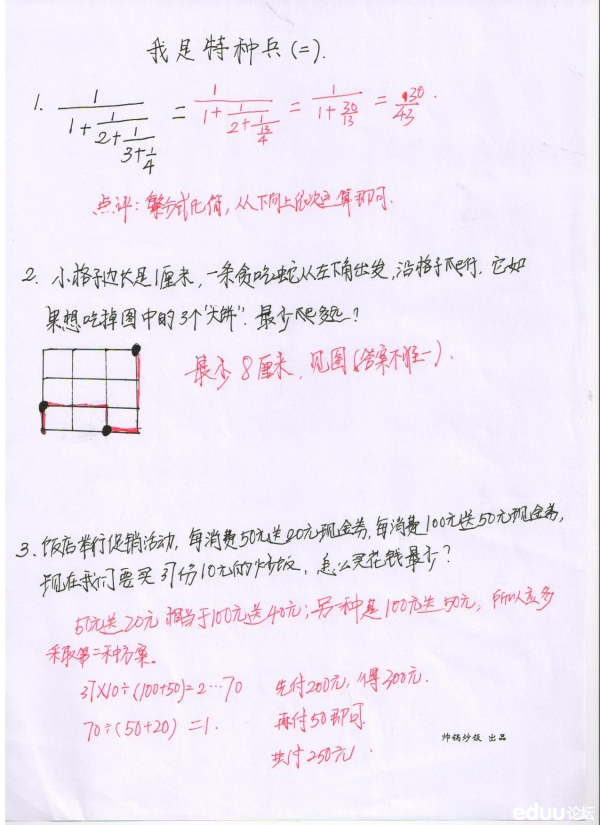 我是特种兵(二).
1. 1/(1+1/(2+1/(3+1/4))) = 1/(1+1/(2+1/(13/4))) = 1/(1+13/30) = 30/43.
点评:繁分式化简,从下向上依次运算即可.
2. 小格子边长是1厘米,一条贪吃蛇从左下角出发,沿格子爬行.它如
果想吃掉图中的3个"大饼".最少爬多远?
最少8厘米.见图(答案不唯一).
3、饭店举行促销活动,每消费50元送20元现金券,每消费100元送50元现金券,
现在我们要买37份10元的炒饭,怎么买花钱最少?
50元送20元相当于100元送40元;另一种是100元送50元,所以应多
采取第二种方案。
37×10÷(100+50)=2…70 先付200元,得300元.
70÷(50+20)=1. 再付50即可
共付250元.
帅锅炒饭 出品
eduu论坛